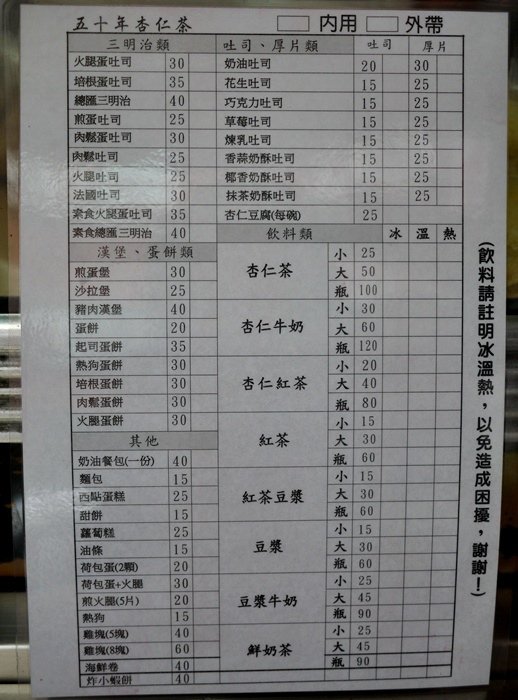 五十年杏仁茶 □ 內用 □ 外帶
三明治類
火腿蛋吐司 30
培根蛋吐司 35
總匯三明治 40
煎蛋吐司 25
肉鬆蛋吐司 30
肉鬆吐司 25
火腿吐司 25
法國吐司 30
素食火腿蛋吐司 35
素食總匯三明治 40
漢堡、蛋餅類
煎蛋堡 30
沙拉堡 25
豬肉漢堡 40
蛋餅 20
起司蛋餅 35
熱狗蛋餅 30
培根蛋餅 30
肉鬆蛋餅 30
火腿蛋餅 30
其他
奶油餐包(一份) 40
麵包 15
西點蛋糕 25
甜餅 15
蘿蔔糕 25
油條 15
荷包蛋(2顆) 20
荷包蛋+火腿 30
煎火腿(5片) 20
熱狗 15
雞塊(5塊) 40
雞塊(8塊) 60
海鮮卷 40
炸小蝦餅 40
吐司、厚片類 吐司 厚片
奶油吐司 20 30
花生吐司 15 25
巧克力吐司 15 25
草莓吐司 15 25
煉乳吐司 15 25
香蒜奶酥吐司 15 25
椰香奶酥吐司 15 25
抹茶奶酥吐司 15 25
杏仁豆腐(每碗) 25
飲料類 冰 溫 熱
杏仁茶
小 25
大 50
瓶 100
杏仁牛奶
小 30
大 60
瓶 120
杏仁紅茶
小 20
大 40
瓶 80
紅茶
小 15
大 30
瓶 60
紅茶豆漿
小 15
大 30
瓶 60
豆漿
小 15
大 30
瓶 60
豆漿牛奶
小 25
大 45
瓶 90
鮮奶茶
小 25
大 45
瓶 90
(飲料請註明冰溫熱，以免造成困擾，謝謝！)